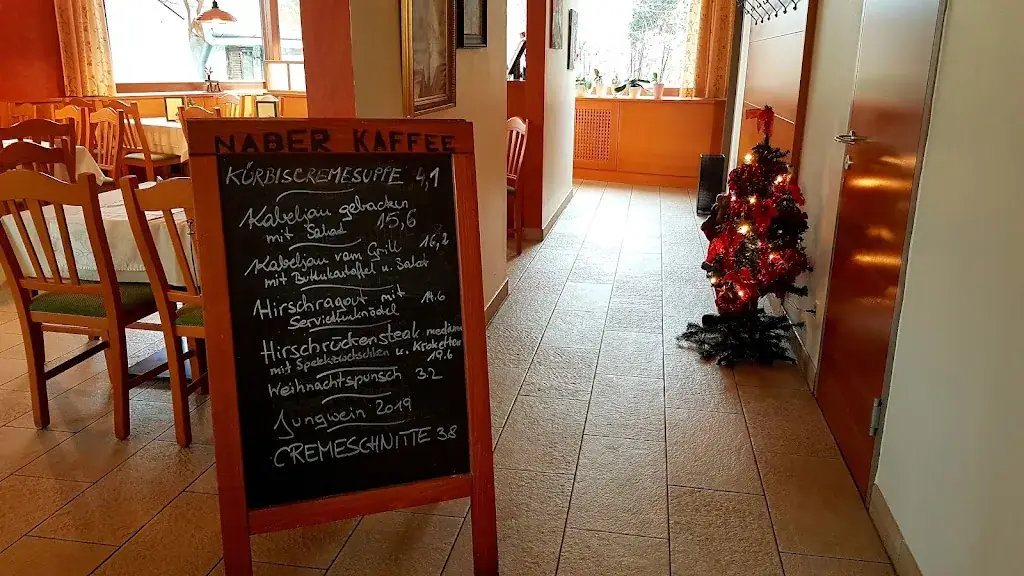 NABER KAFFEE
KÜRBISCREMESUPPE 4,1
Kabeljau gebacken
mit Salad 15,6
Kabeljau vom Grill 16,2
mit Butterkartoffel u. Salat
Hirschragout mit
Serviettenknödel 14.6
Hirschrückensteak medium
mit Speckkohlsprossen u. Kroketten
19.6
Weihnachtspunsch 3.2
Jungwein 2019
CREMESCHNITTE 3.8